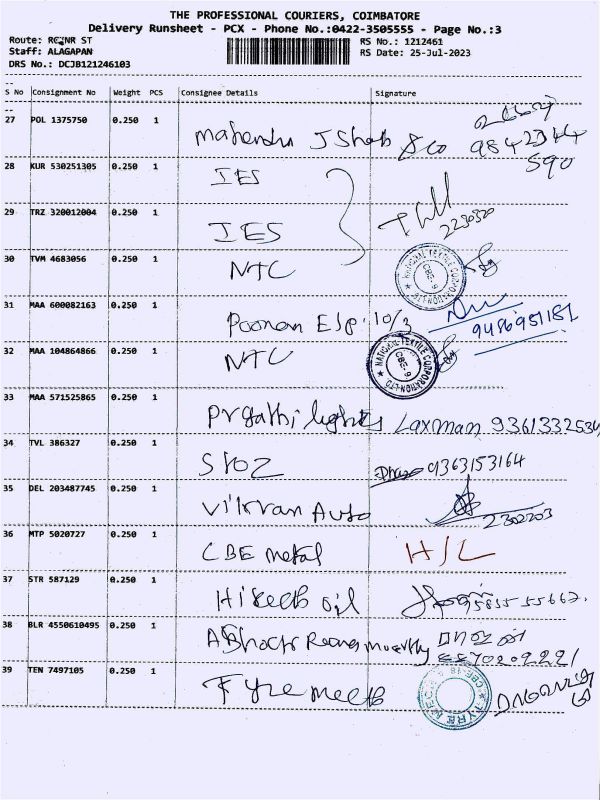 THE PROFESSIONAL COURIERS, COIMBATORE
Delivery Runsheet - PCX - Phone No.:0422-3505555 - Page No.:3
Route: ST RS No.: 1212461
Staff: ALAGAPAN RS Date: 25-Jul-2023
DRS No.: DCJB121246103
S No Consignment No Weight PCS Consignee Details Signature
27 POL 1375750 0.250 1 Mahendra J Shah & co 9842344
590
28 KUR 530251305 0.250 1 IES
29 TRZ 320012004 0.250 1 IES 2230320
30 TVM 4683056 0.250 1 NTC NATIONAL TEXTILE CORPORATION LTD. CBE-9
31 MAA 600082163 0.250 1 Poonam Esp. 10/3 9486951181
32 MAA 104864866 0.250 1 NTC NATIONAL TEXTILE CORPORATION LTD. CBE-9
33 MAA 571525865 0.250 1 Prgathi lights Laxman 9361332534
34 TVL 386327 0.250 1 9363153164
35 DEL 203487745 0.250 1 Vikran Auto 2302203
36 MTP 5020727 0.250 1 CBE metal H/L
37 STR 587129 0.250 1 oil 55662
38 BLR 4550610495 0.250 1
39 TEN 7497105 0.250 1 CBE-18